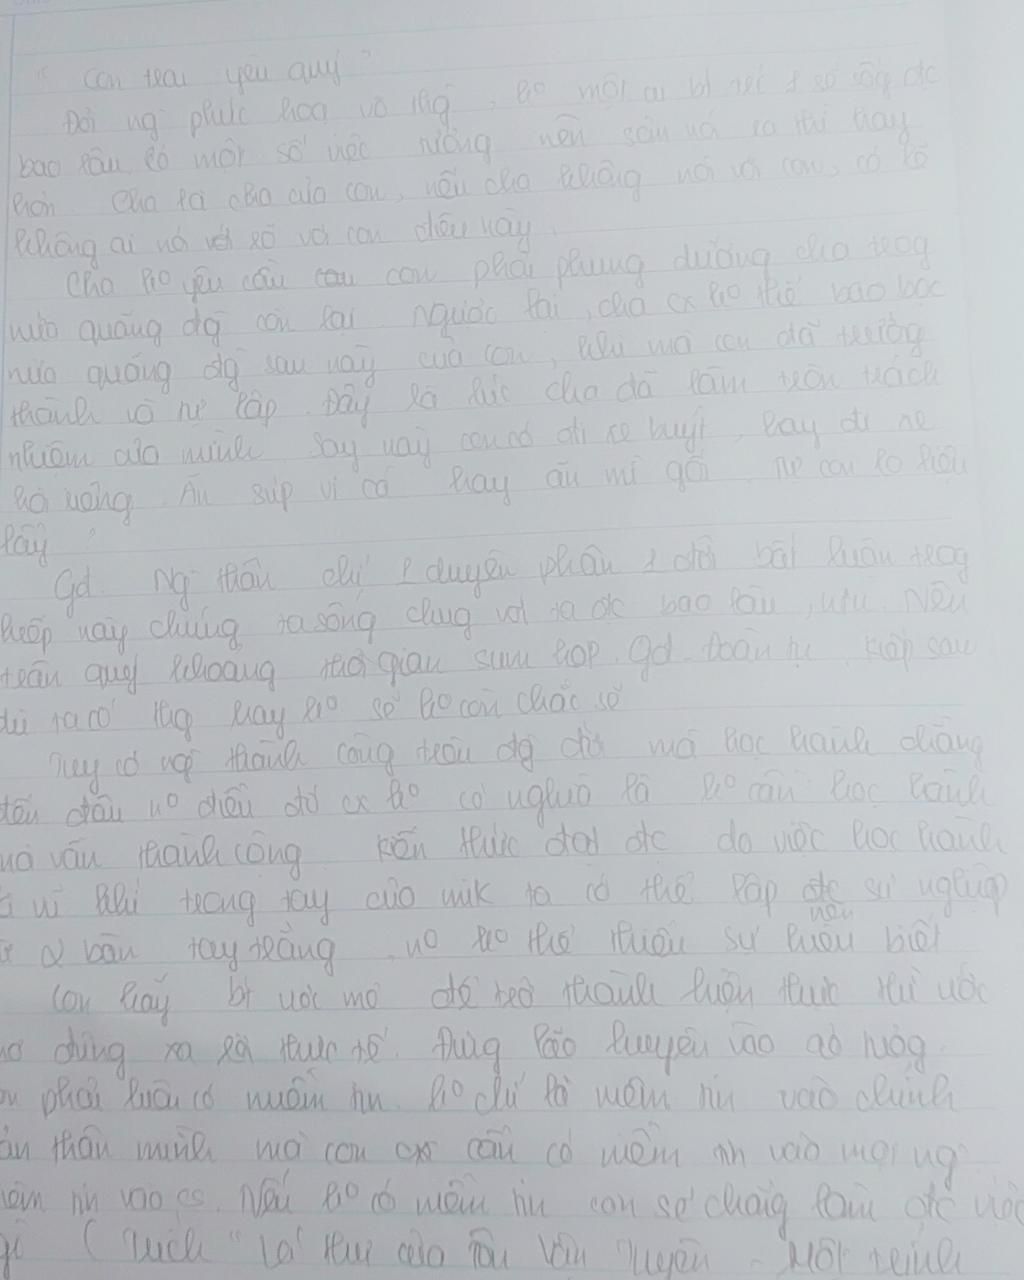 " Con trai yêu quý"
Đời ng phức hoạ vô thg, ko một ai bt trc đc sống đc
bao lâu, có một số việc nên sớm nói ra thì hay
hơn. Cha là cha của con, nếu cha không nói với con, có lẽ
không ai nói rõ với con điều này.
Cha ko yêu cầu con phải phụng dưỡng cha trog
nửa quãng đg còn lại. Ngược lại, cha cx ko thể bao bọc
nửa quãng đg sau này của con, khi mà con đã trưởng
thành và tự lập. Đây là lúc cha đã làm tròn trách
nhiệm của mình. Sau này con có đi xe buýt, hay đi xe
hơi Ăn súp vi cá hay ăn mì gói. Tự con lo liệu
lấy
Gđ. Ng thân chỉ là duyên phận 1 đời bất luận trog
kiếp này chúng ta sống chug vs ta đc bao lâu, Nên
trân quý khoảng thời gian sum họp. Gđ đoàn tụ kiếp sau
dù ta có thg hay ko sẽ ko còn chắc sẽ
Tuy có ng thành công trên đg đời mà học hành chẳng
đến đâu nhưng điều đó cx ko có nghĩa là ko cần học hành
mà vẫn thành công Kiến thức đạt đc do việc học hành
vũ khí trong tay của mik ta có thể lập đc sự nghiệp
bàn tay trắng, ko thể thiếu sự hiểu biết
Con hãy bt ước mơ để trở thành hiện thực thì ước
mơ đừng xa rời thực tế. Đừng hão huyền vào ảo tưởg
phải luôn có niềm tin. Ko chỉ là niềm tin vào chính
thân mình mà con cx cần có niềm tin vào mọi ng
tin vào cs. Nếu ko có niềm tin con sẽ chẳng làm đc việc
gì (Trích "Lá thư của Tôn Vận Tuyền - Một